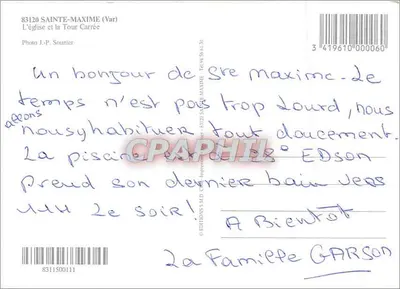 83120 SAINTE-MAXIME (Var)
L'église et la Tour Carrée
Photo J.-P. Sourice
3 419610 000060
Un bonjour de Ste Maxime. Le
temps n'est pas trop lourd, nous
allons
nous y habituer tout doucement.
La piscine est à 33° EDSON
prend son dernier bain vers
11H le soir!
A Bientôt
La Famille GARSON
CPAPHIL
8311500111